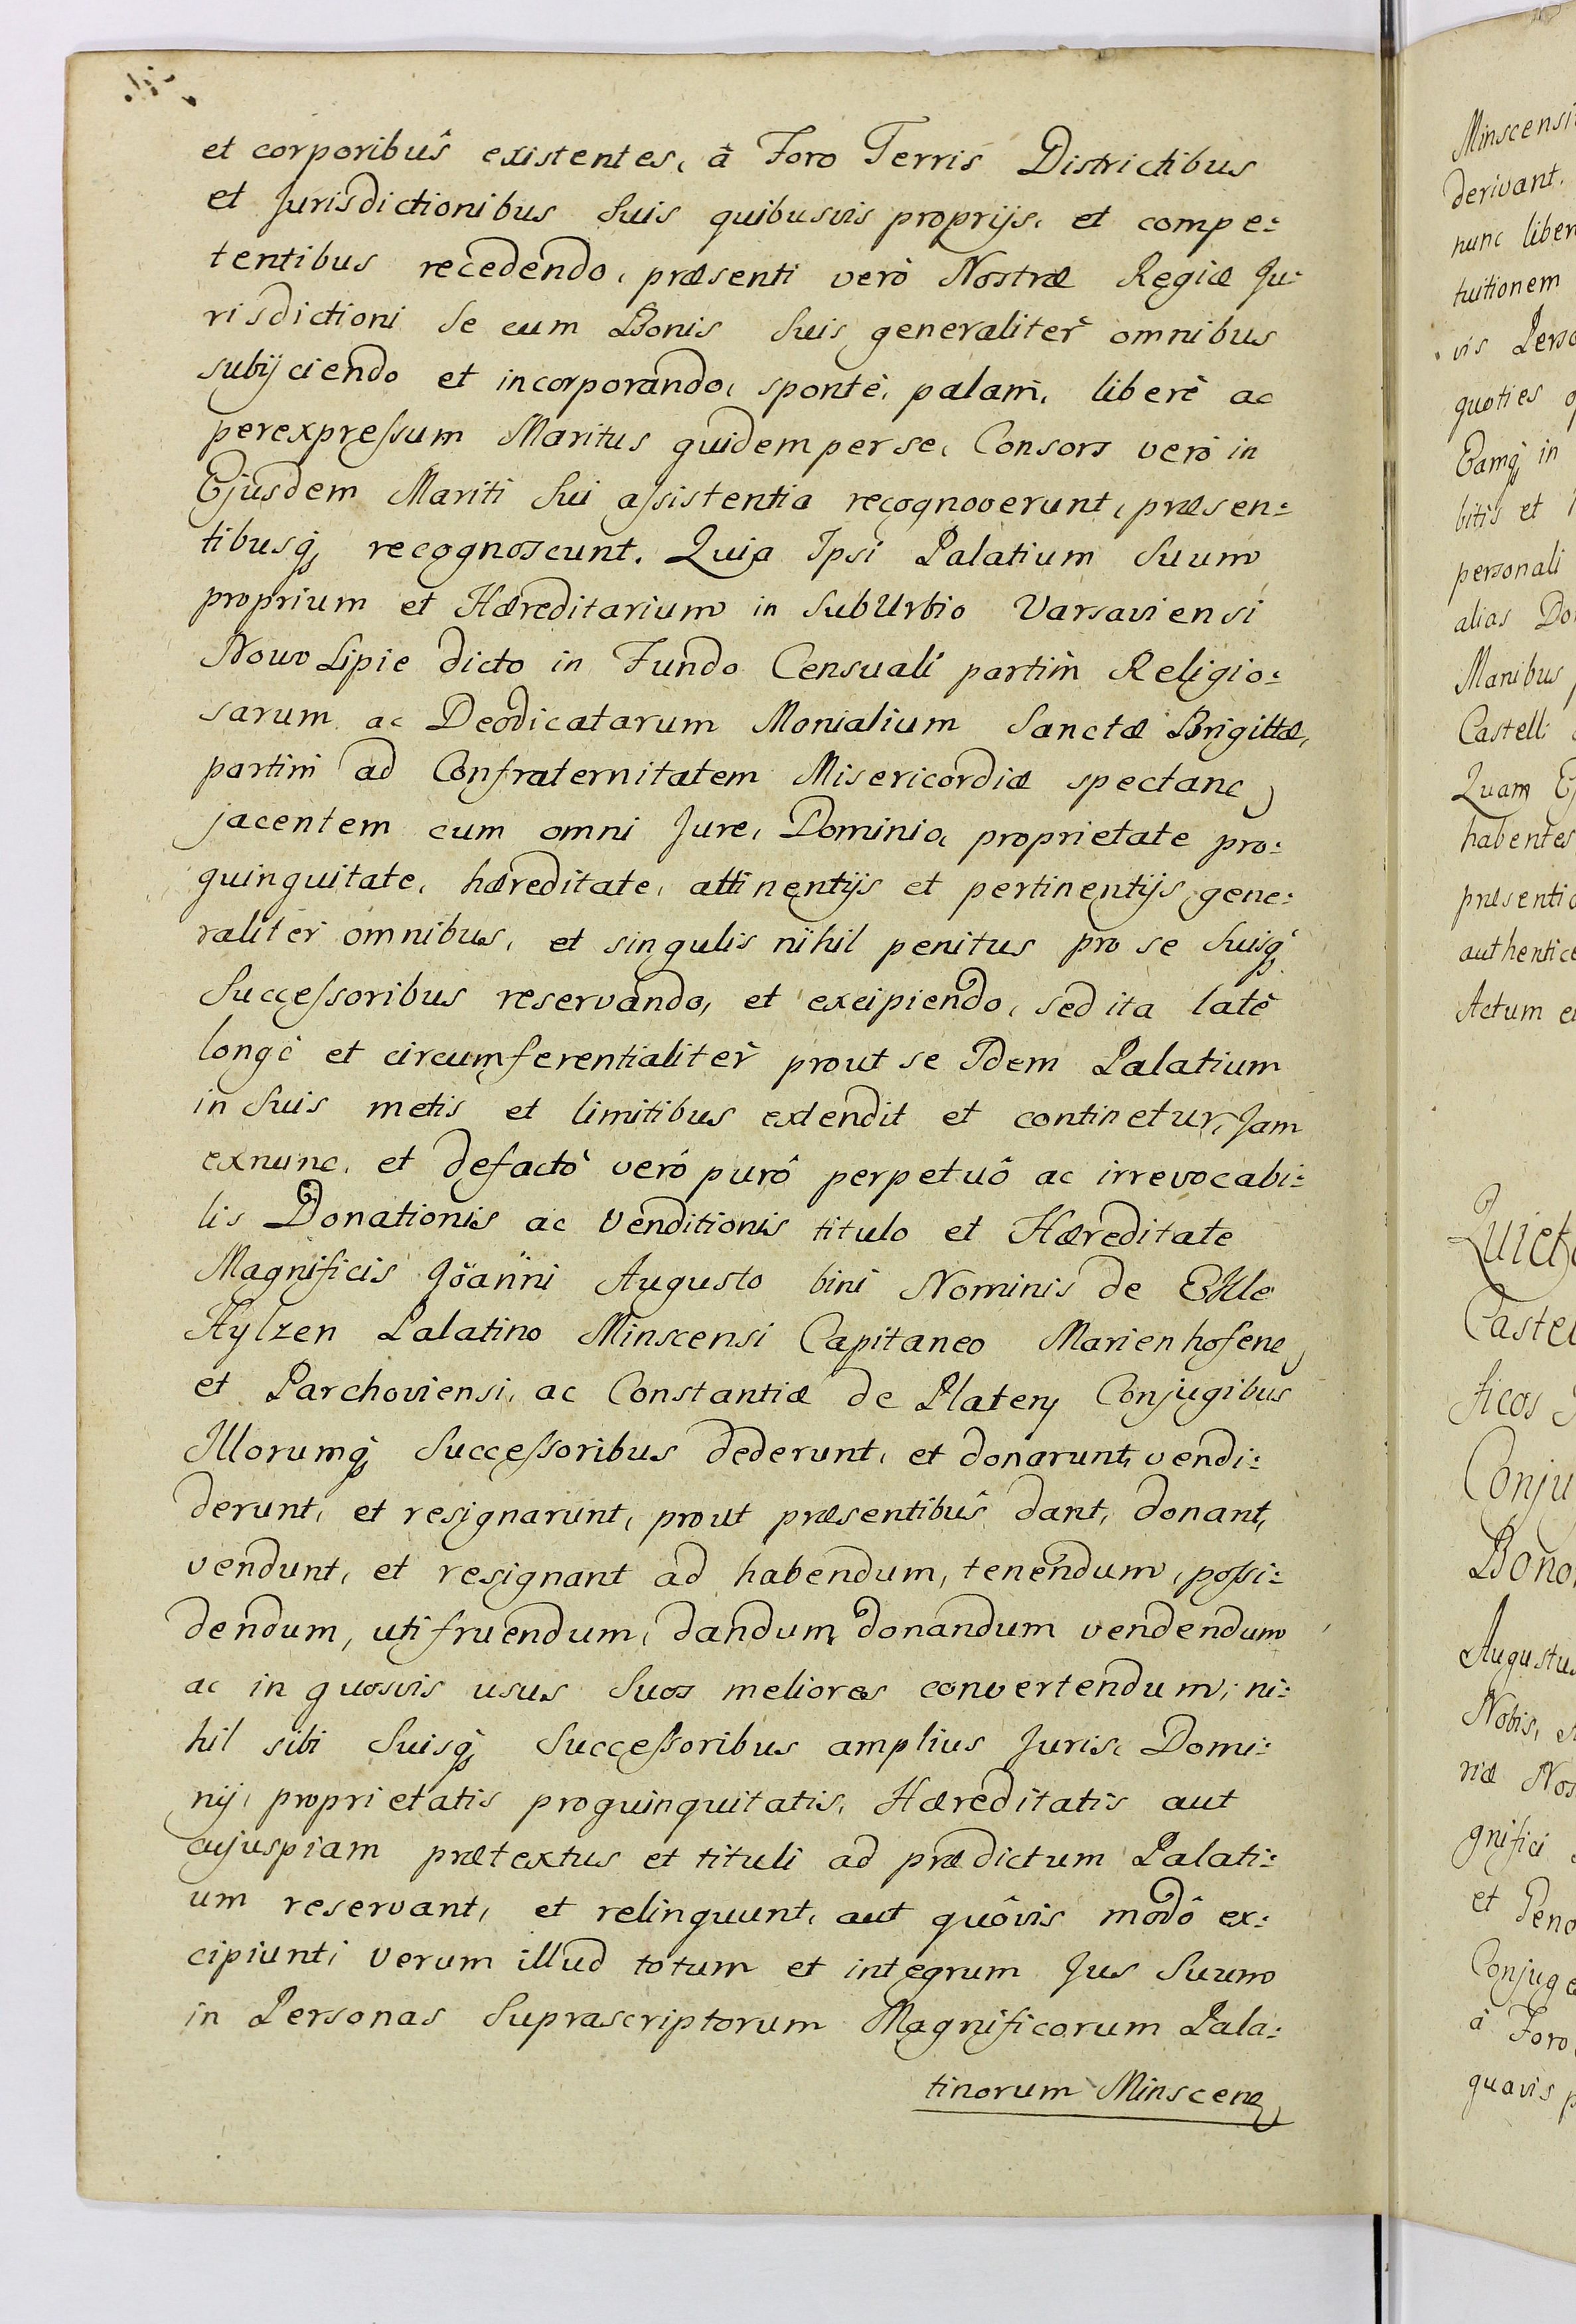 et corporibus̑ existentes, à Foro Terris Districtibus
et Jurisdictionibus Suis quibusvis proprijs, et compe:
tentibus recedendo, præsenti verò Nostræ Regiæ Ju:
risdictioni Se cum Bonis Suis generalitèr omnibus
subijciendo et incorporando, spontè, palam, liberè ac
perexpreſsum Maritus quidem per se, Consors verò in
Ejusdem Mariti Sui aſsistentia recognoverunt, præsen:
tibusq́ꝫ recognoscunt. Quia Ipsi Palatium Suum
proprium et Hæreditarium in SubUrbio Varsaviensi
Nowo Lipie dicto in Fundo Censuali partìm Religio:
sarum ac Deodicatarum Monialium Sanctæ Brigittæ,
partìm ad Confraternitatem Misericordiæ spectanc
jacentem cum omni Jure, Dominio, proprietate pro:
quinquitate, hæreditate, attinentijs et pertinentijs gene:
ralitèr omnibus, et singulis nihil penitus pro se Suisq́ꝫ
Succeſsoribus reservando, et excipiendo, sed ita latè
longè et circumferentialitèr prout se Idem Palatium
in Suis metis et limitibus extendit et continetur, Jam
exnunc, et defactò verò purô perpetuô ac irrevocabi:
lis Donationis ac Venditionis titulo et Hæreditate
Magnificis Joanni Augusto bini Nominis de Ekle
Hylzen Palatino Minscensi Capitaneo Marienhofene
et Parchoviensi, ac Constantiæ de Platery Conjugibus
Illorumq́ꝫ Succeſsoribus dederunt, et donarunt, vendi:
derunt, et resignarunt, prout præsentibus̑ dant, donant,
vendunt, et resignant ad habendum, tenendum, poſsi:
dendum, utifruendum, dandum donandum vendendum
ac in quosvis usus Suos meliores convertendum; ni:
hil sibi Suisq́ꝫ Succeſsoribus amplius Juris, Domi:
nij, proprietatis proquinquitatis, Hæreditatis aut
cujuspiam prætextus et tituli ad prædictum Palati:
um reservant, et relinquunt, aut quôvis modô ex:
cipiunt; Verum illud totum et integrum Jus Suum
in Personas Suprascriptorum Magnificorum Pala:
tinorum Minscene
Minscensi
derivant.
nunc liber
tuitionem
vis Perso
quoties
Eamq́ꝫ in
bitis et
personali
alias Do
Manibus
Castelli
Quam
habentes
præsenti
authentice
Actum
Quiet
Castel
ficos
Conju
Bono
Augustus
Nobis,
riæ Nos
gnifici
et
Conjuge
à Foro
quavis